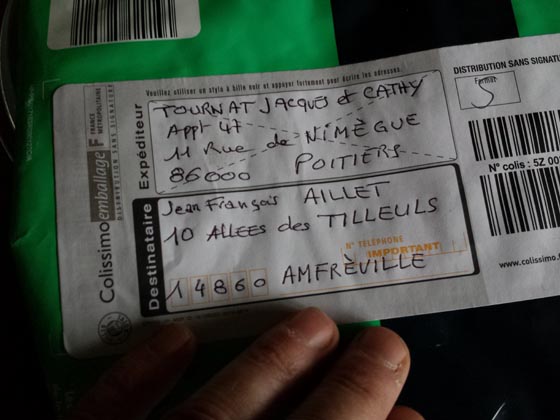 Veuillez utiliser un stylo à bille noir et appuyer fortement pour écrire les adresses.
DISTRIBUTION SANS SIGNATURE
Format
S
Colissimo emballage F FRANCE MÉTROPOLITAINE
DISTRIBUTION SANS SIGNATURE
Expéditeur
TOURNAT JACQUES et CATHY
APPt 47
11 Rue de NIMÈGUE
86000 POITIERS
Destinataire
Jean François AILLET
10 ALLEES des TILLEULS
N° TÉLÉPHONE
IMPORTANT
14860 AMFRÈVILLE
N° colis : 5Z 00
www.colissimo.f